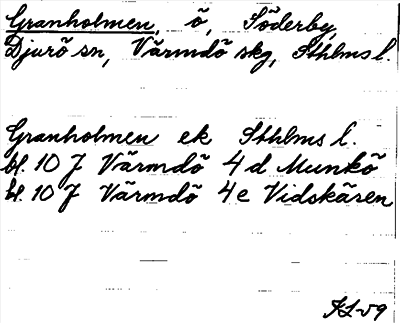 Granholmen, ö, Söderby,
Djurö sn, Värmdö skg, Sthlms l.
Granholmen ek Sthlms l.
bl. 10 J Värmdö 4 d Munkö
bl. 10 J Värmdö 4 e Vidskären